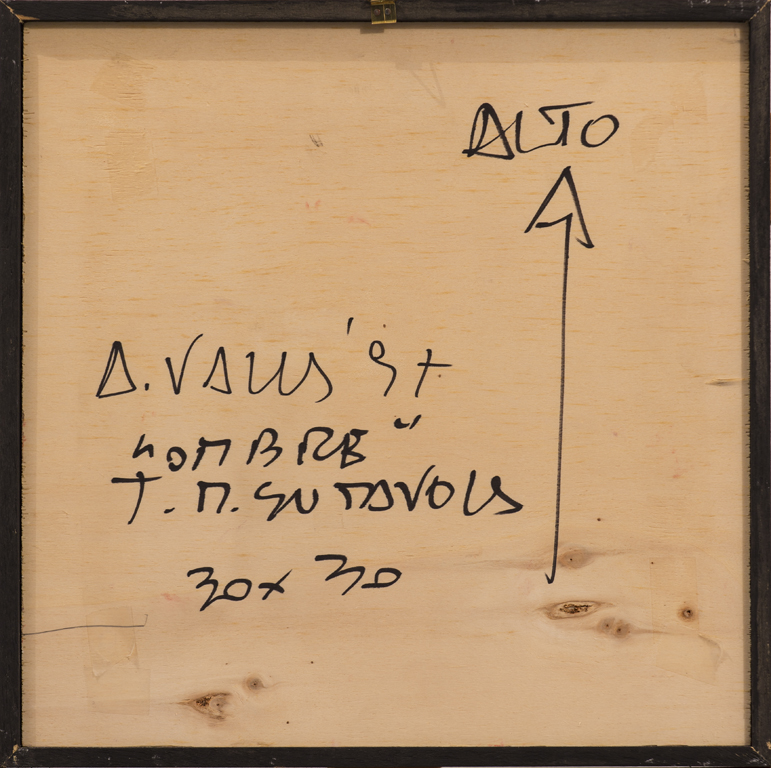 ALTO
A. VALLS '97
"OMBRE"
T. M. SU TAVOLA
30 x 30